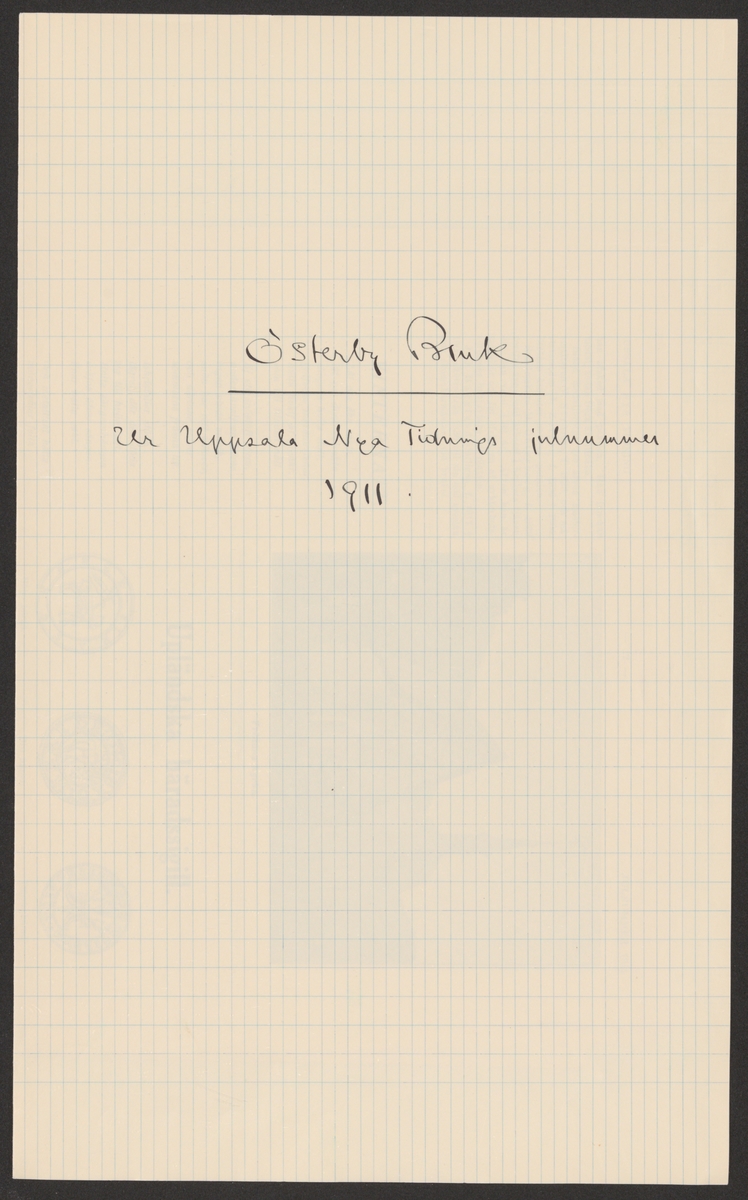 Österby Bruk
Ur Uppsala Nya Tidnings julnummer
1911.